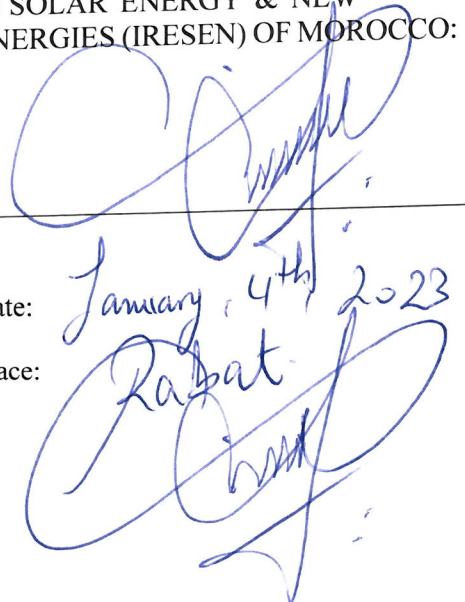 SOLAR ENERGY & NEW
NERGIES (IRESEN) OF MOROCCO:
ate: January, 4th, 2023
ace: Rabat